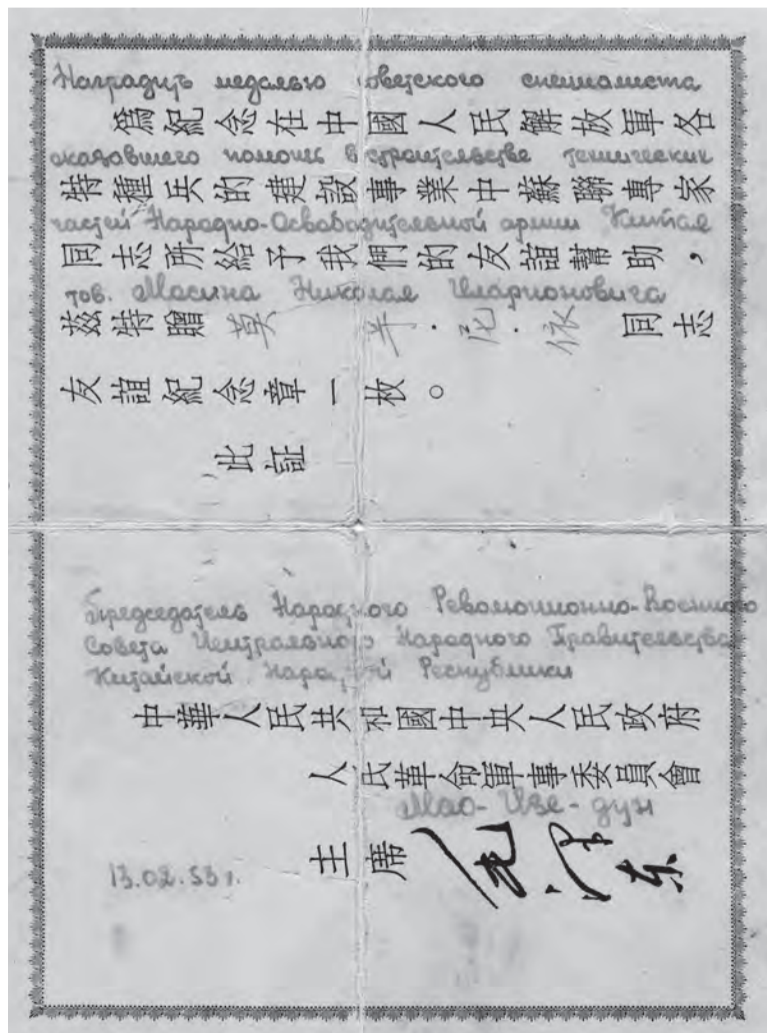 Наградить медалью советского специалиста
爲紀念在中國人民解放軍各
оказавшего помощь в строительстве технических
特種兵的建設事業中蘇聯專家
частей Народно-Освободительной армии Китая
同志所給予我們的友誼幫助，
тов. Масина Николая Иларионовича
茲特贈 莫 ·尼·依 同志
友誼紀念章一枚。
此証
Председатель Народного Революционно-Военного
Совета Центрального Народного Правительства
Китайской Народной Республики
中華人民共和國中央人民政府
人民革命軍事委員會
Мао-Цзе-дун
主席 毛泽东
13.02.53 г.